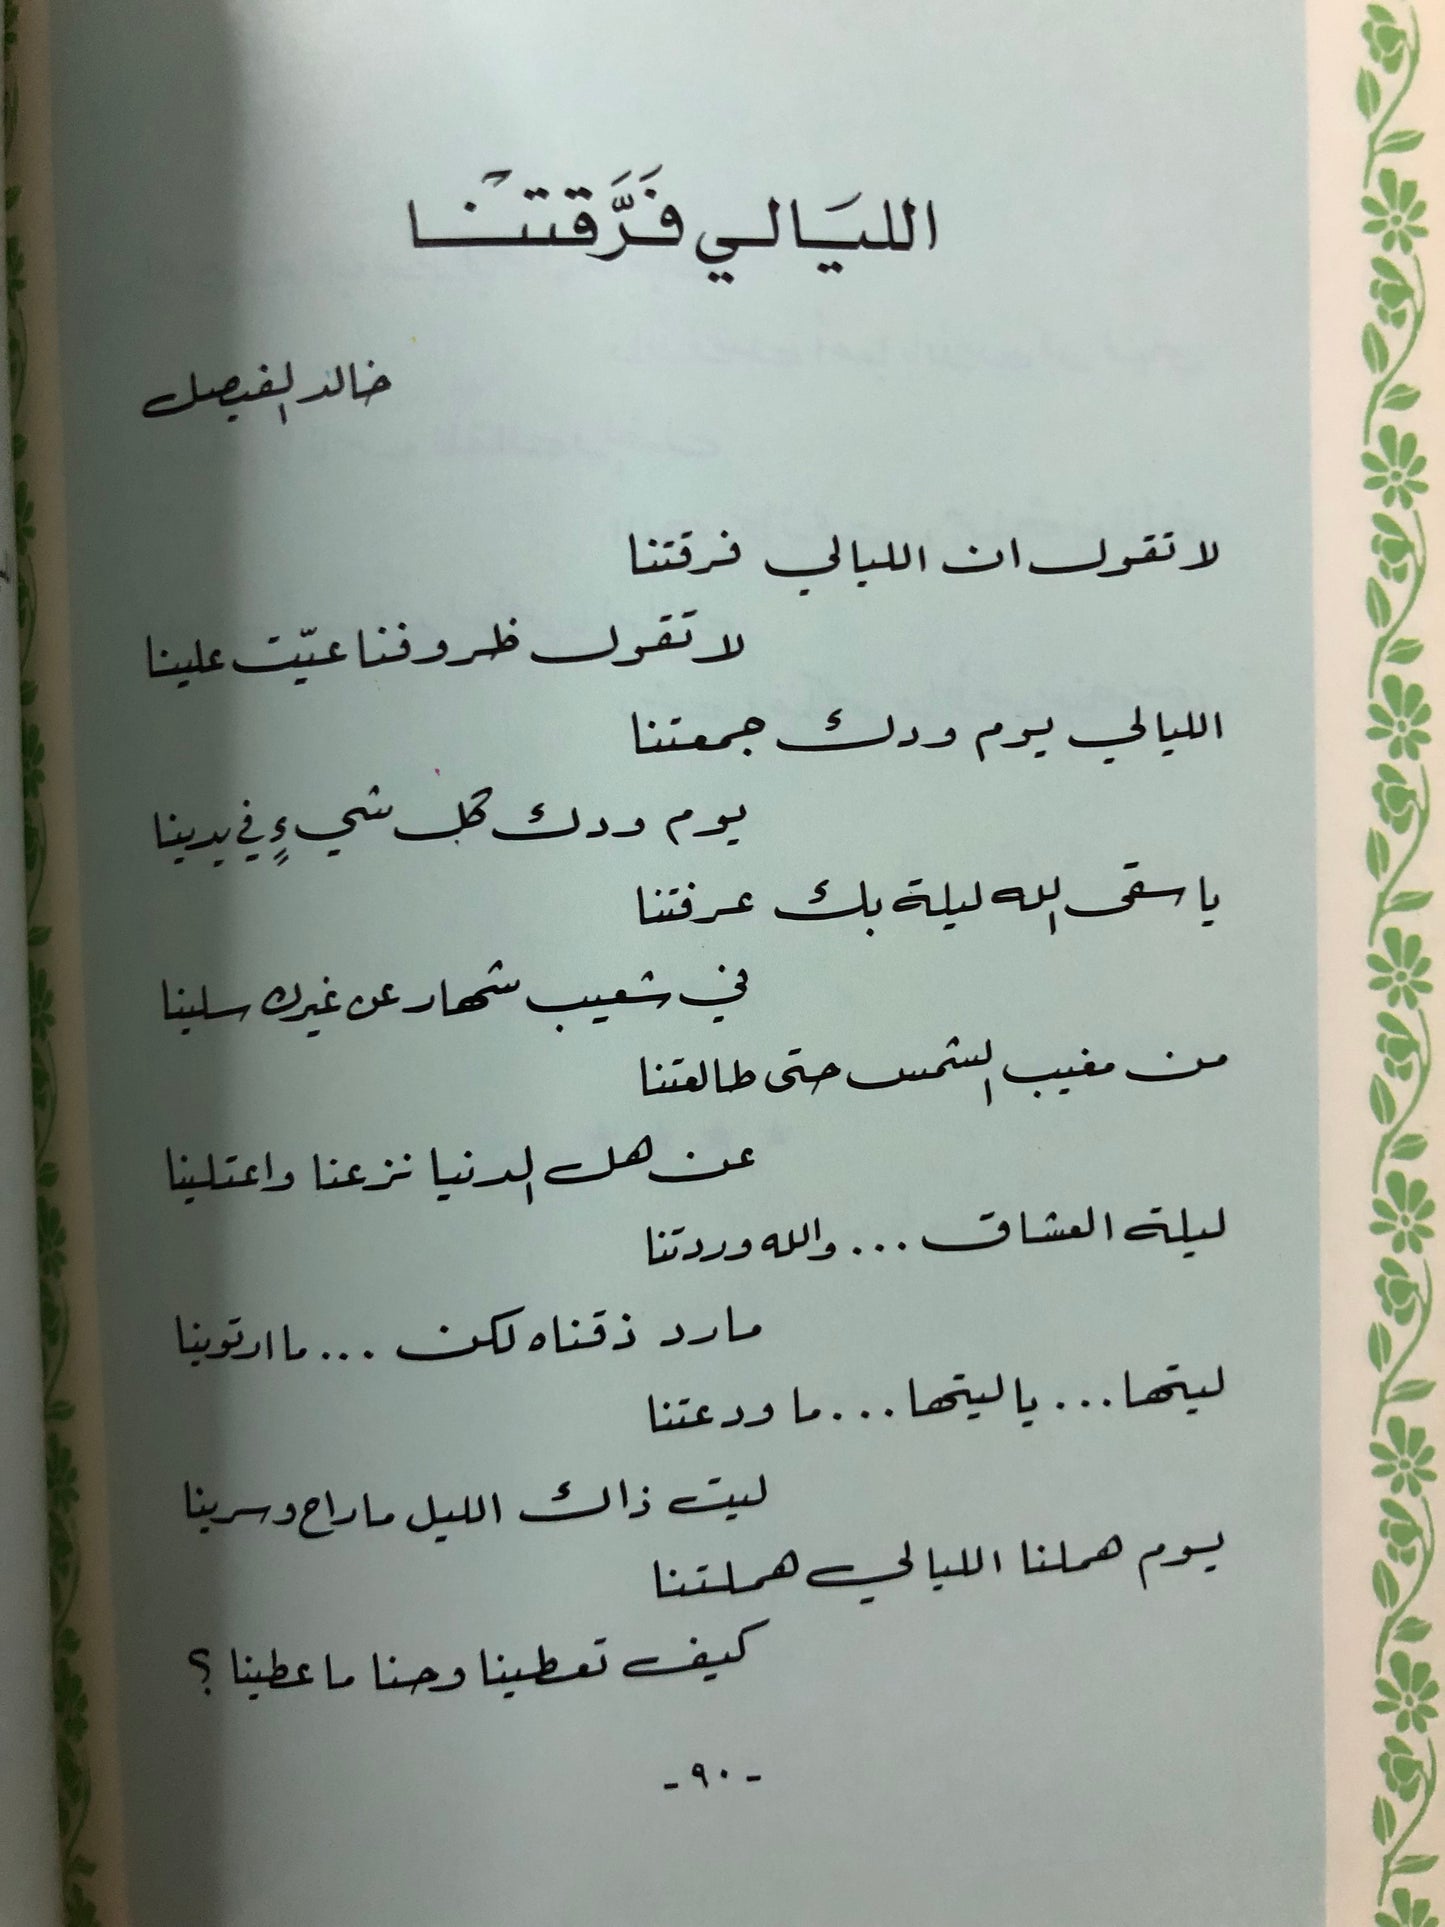 الليَالي فَرَّقتنَا
خالد الفيصل
لا تقول ان الليالي فرقتنا
لا تقول ظروفنا عيّت علينا
الليالي يوم ودك جمعتنا
يوم ودك كل شيءٍ في يدينا
يا سقى الله ليلة بك عرفتنا
في شعيب شهار عن غيرك سلينا
من مغيب الشمس حتى طالعتنا
عن هل الدنيا نزعنا واعتلينا
ليلة العشاق ... والله وردتنا
مارد ذقناه لكن ... ما ارتوينا
ليتها ... يا ليتها ... ما ودعتنا
ليت ذاك الليل ما راح وسرينا
يوم هملنا الليالي هملتنا
كيف تعطينا وحنا ما عطينا ؟
- ٩٠ -